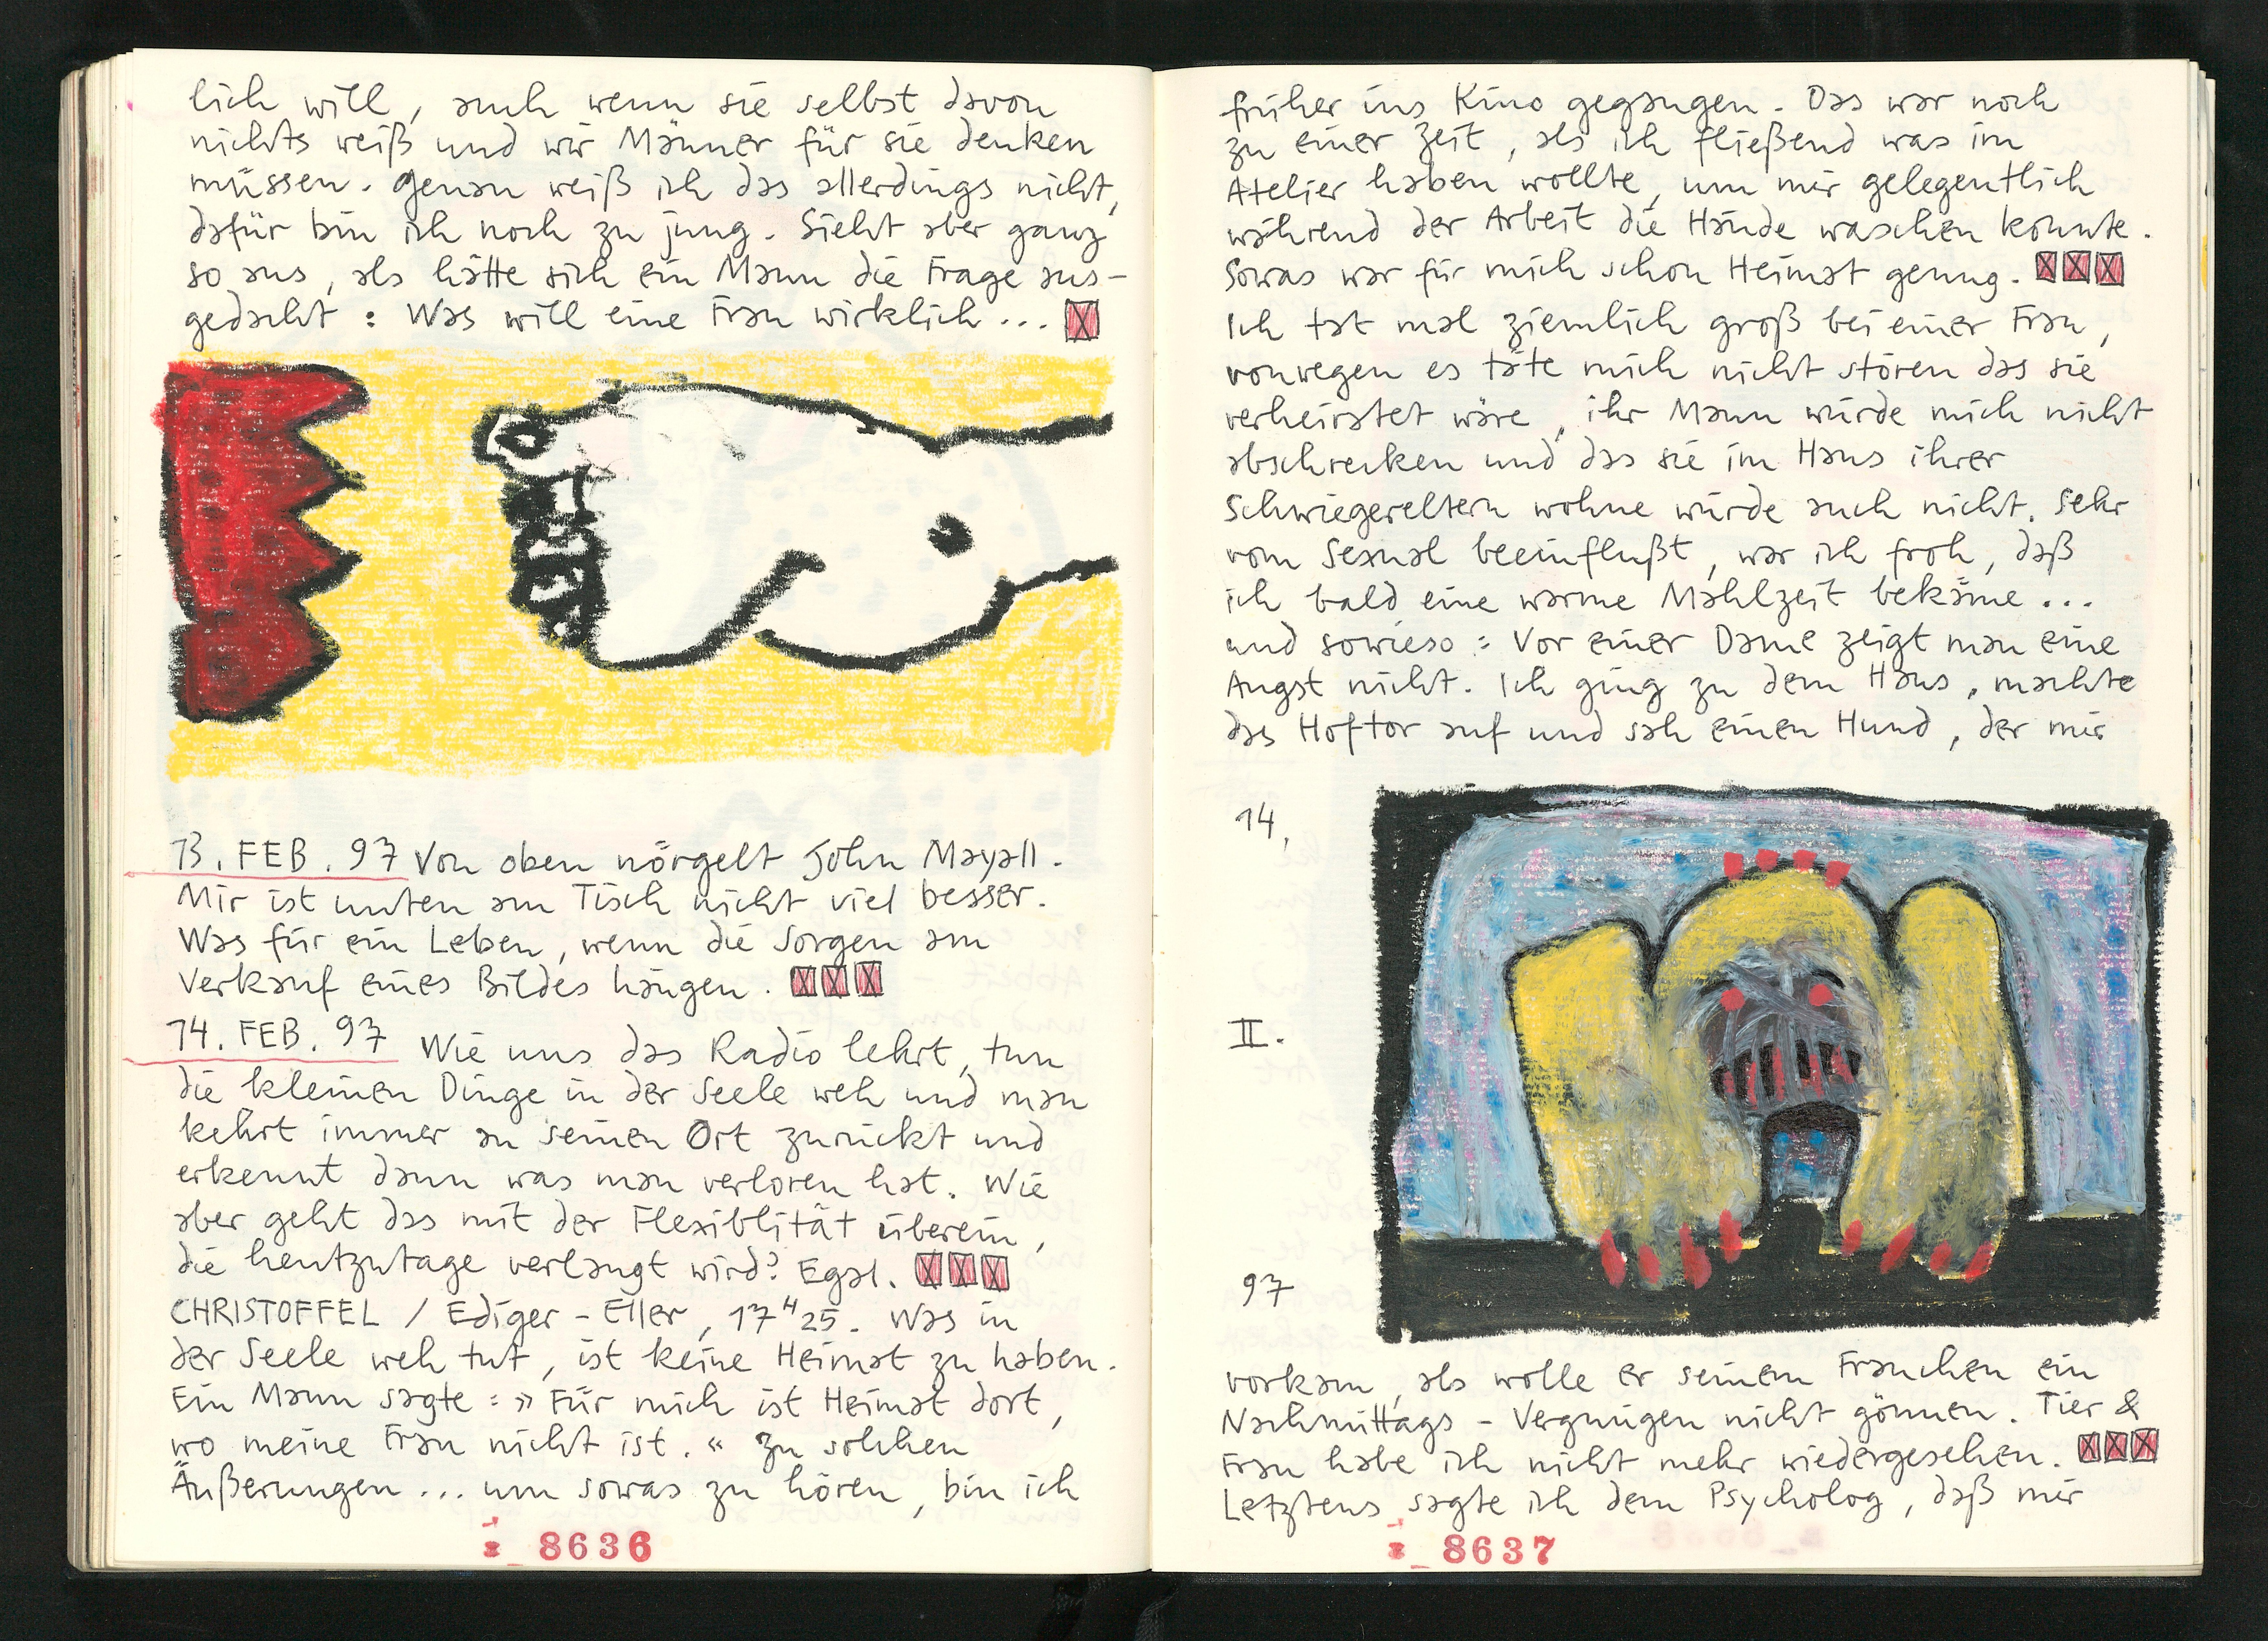 lich will, auch wenn sie selbst davon
nichts weiß und wir Männer für sie denken
müssen. Genau weiß ich das allerdings nicht,
dafür bin ich noch zu jung. Sieht aber ganz
so aus, als hätte sich ein Mann die Frage aus-
gedacht: Was will eine Frau wirklich...
13. FEB. 97 Von oben nörgelt John Mayall.
Mir ist unten am Tisch nicht viel besser.
Was für ein Leben, wenn die Sorgen am
Verkauf eines Bildes hängen.
14. FEB. 97 Wie uns das Radio lehrt, tun
die kleinen Dinge in der Seele weh und man
kehrt immer an seinen Ort zurückt und
erkennt dann was man verloren hat. Wie
aber geht das mit der Flexiblität überein,
die heutzutage verlangt wird? Egal.
CHRISTOFFEL / Ediger-Eller, 17H25. Was in
der Seele weh tut, ist keine Heimat zu haben.
Ein Mann sagte: »Für mich ist Heimat dort,
wo meine Frau nicht ist.« Zu solchen
Äußerungen... um sowas zu hören, bin ich
8636
früher ins Kino gegangen. Das war noch
zu einer Zeit, als ich fließend was im
Atelier haben wollte, um mir gelegentlich
während der Arbeit die Hände waschen konnte.
Sowas war für mich schon Heimat genug.
Ich tat mal ziemlich groß bei einer Frau,
vonwegen es täte mich nicht stören das sie
verheiratet wäre, ihr Mann würde mich nicht
abschrecken und das sie im Haus ihrer
Schwiegereltern wohne würde auch nicht. Sehr
vom Sexual beeinflußt, war ich froh, daß
ich bald eine warme Mahlzeit bekäme...
und sowieso: Vor einer Dame zeigt man eine
Angst nicht. Ich ging zu dem Haus, machte
das Hoftor auf und sah einen Hund, der mir
14.
II.
97
vorkam, als wolle er seinem Frauchen ein
Nachmittags-Vergnügen nicht gönnen. Tier &
Frau habe ich nicht mehr wiedergesehen.
Letztens sagte ich dem Psycholog, daß mir
8637